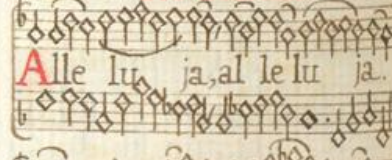 Alle lu ja, al le lu ja.